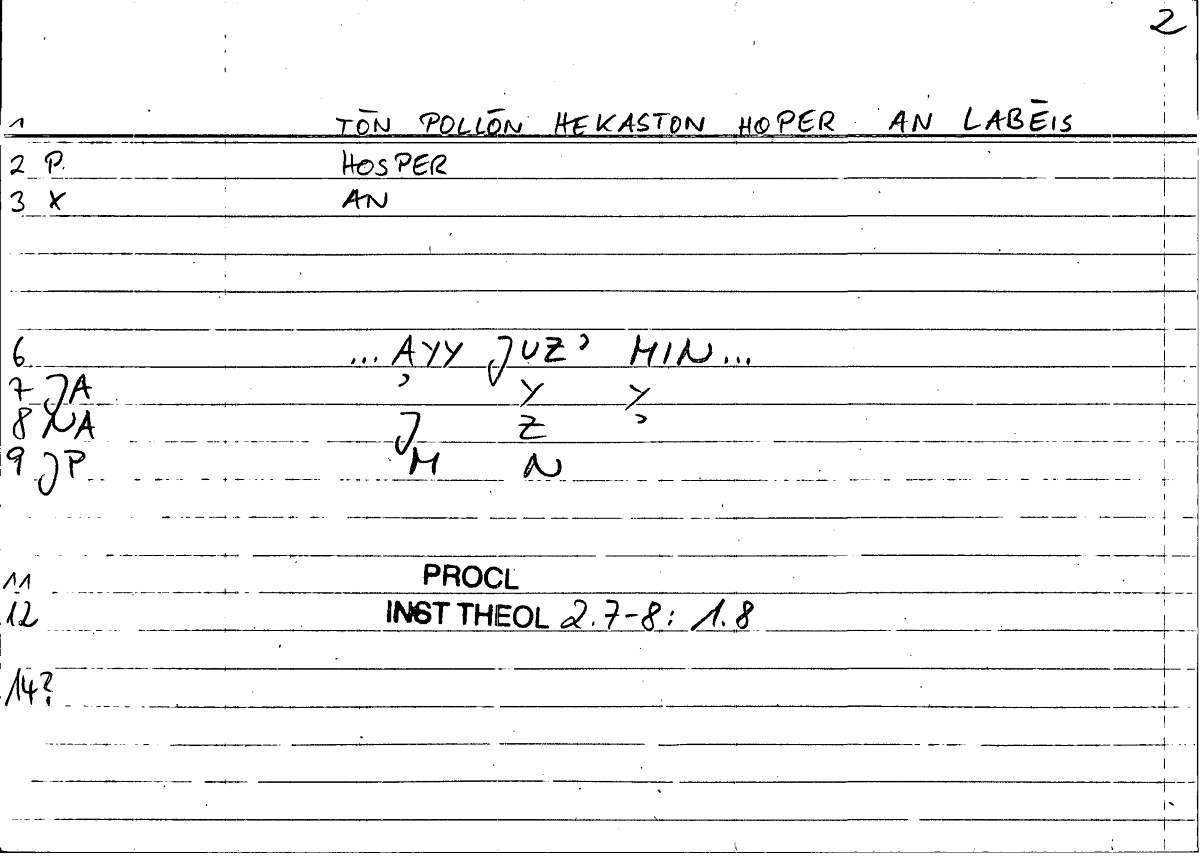 2
1 TŌN POLLŌN HEKASTON HOPER AN LABĒIS
2 P. HOSPER
3 X AN
6 ... AYY JUZ' MIN...
7 JA ' Y Y
8 NA J Z '
9 JP M N
11 PROCL
12 INST THEOL 2.7-8: 1.8
14?